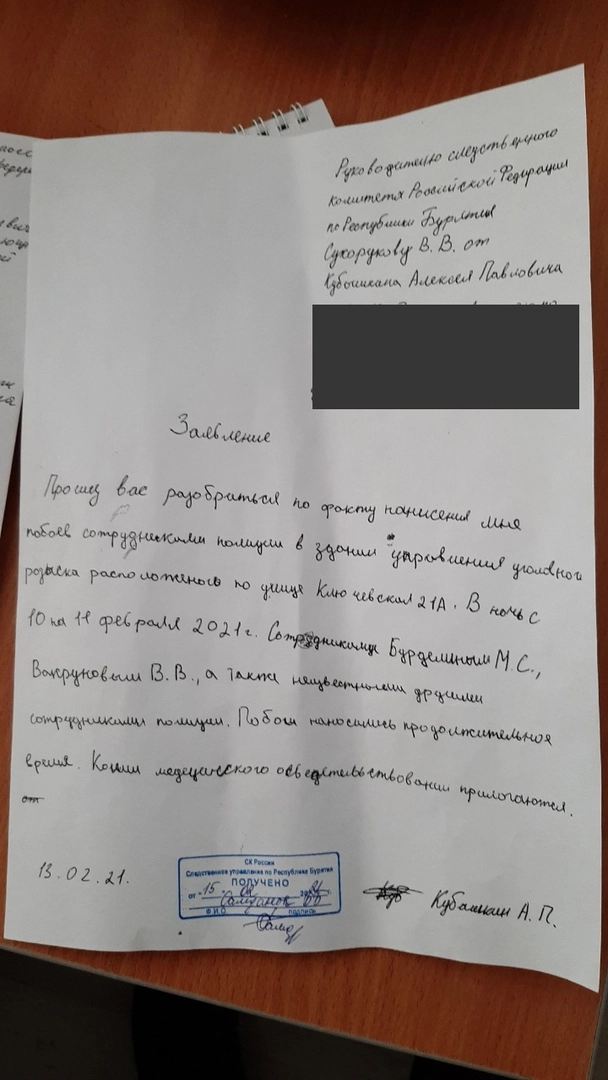 Руководителю следственного
комитета Российской Федерации
по Республики Бурятия
Сухорукову В. В. от
Кубашкана Алексея Павловича
Заявление
Прошу вас разобраться по факту нанисения мня
побоев сотрудниками полиции в здании упровления уголовного
розыска расположеного по улице Ключевская 21А. В ночь с
10 на 11 февраля 2021 г. Сотрудниками М.С.,
В.В., а также неизвестными другими
сотрудниками полиции. Побои наносились продолжительное
время. Копии медецинского прилогаются.
от
13.02.21.
СК России
Следственное управление по Республике Бурятия
ПОЛУЧЕНО
от 15 20 21 г.
Ф.И.О. подпись
А. П.